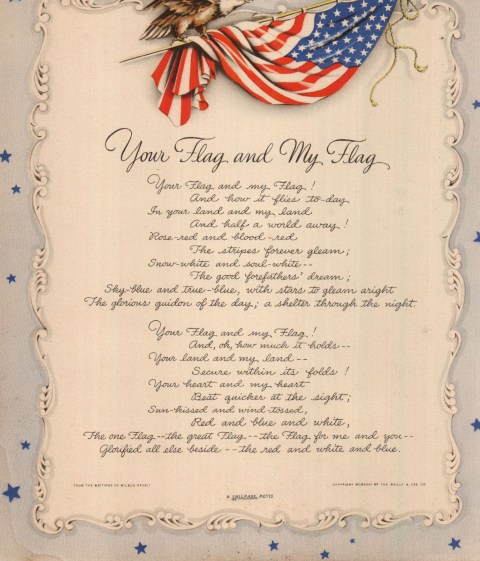 Your Flag and My Flag
Your Flag and my Flag!
And how it flies to-day
In your land and my land
And half a world away!
Rose-red and blood-red
The stripes forever gleam;
Snow-white and soul-white--
The good forefathers' dream;
Sky-blue and true-blue, with stars to gleam aright
The glorious guidon of the day; a shelter through the night.
Your Flag and my Flag!
And, oh, how much it holds--
Your land and my land--
Secure within its folds!
Your heart and my heart
Beat quicker at the sight;
Sun-kissed and wind-tossed,
Red and blue and white,
The one Flag--the great Flag--the Flag for me and you--
Glorified all else beside--the red and white and blue.
FROM THE WRITINGS OF WILBUR NESBIT
A MOTTO
COPYRIGHT BY THE REILLY & LEE CO.